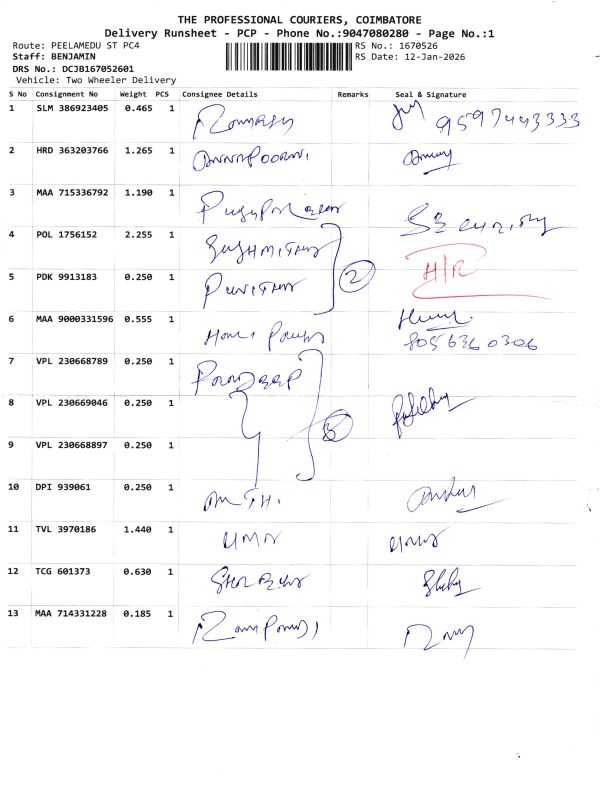 THE PROFESSIONAL COURIERS, COIMBATORE
Delivery Runsheet - PCP - Phone No.:9047080280 - Page No.:1
Route: PEELAMEDU ST PC4 RS No.: 1670526
Staff: BENJAMIN RS Date: 12-Jan-2026
DRS No.: DCJB167052601
Vehicle: Two Wheeler Delivery
S No Consignment No Weight PCS Consignee Details Remarks Seal & Signature
1 SLM 386923405 0.465 1 9597443333
2 HRD 363203766 1.265 1 ANNAPOORNI
3 MAA 715336792 1.190 1 SECURITY
4 POL 1756152 2.255 1 SUSHMITHA
5 PDK 9913183 0.250 1 PUNITHA 2 H/R
6 MAA 9000331596 0.555 1 8056360306
7 VPL 230668789 0.250 1
8 VPL 230669046 0.250 1
9 VPL 230668897 0.250 1
10 DPI 939061 0.250 1
11 TVL 3970186 1.440 1 UMA
12 TCG 601373 0.630 1
13 MAA 714331228 0.185 1